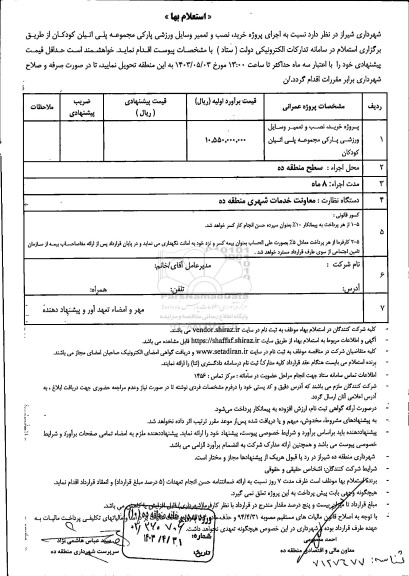 « استعلام بها »
شهرداری شیراز در نظر دارد نسبت به اجرای پروژه خرید، نصب و تعمیر وسایل ورزشی پارکی مجموعه پلی اتیلن کودکان از طریق
برگزاری استعلام در سامانه تدارکات الکترونیکی دولت ( ستاد ) با مشخصات پیوست اقدام نماید. خواهشمند است حداقل قیمت
پیشنهادی خود را با اعتبار سه ماه حداکثر تا ساعت ۱۳:۰۰ مورخ ۱۴۰۳/۰۵/۰۳ به این منطقه تحویل نمایید، تا در صورت صرفه و صلاح
شهرداری برابر مقررات اقدام گردد./ن
ردیف مشخصات پروژه عمرانی قیمت برآورد اولیه (ریال) قیمت پیشنهادی ( ریال ) ضریب پیشنهادی ملاحظات
۱ پروژه خرید، نصب و تعمیر وسایل ورزشی پارکی مجموعه پلی اتیلن کودکان ۱۰،۵۵۰،۰۰۰،۰۰۰
۲ محل اجراء : سطح منطقه ده
۳ مدت اجراء: ۸ ماه
۴ دستگاه نظارت : معاونت خدمات شهری منطقه ده
۵ کسور قانونی :
۵-۱ از هر پرداخت به پیمانکار ۱۰٪ بعنوان سپرده حسن انجام کار کسر خواهد شد.
۵-۲ کارفرما از هر پرداخت معادل ۵٪ بصورت علی الحساب بعنوان بیمه کسر و نزد خود به امانت نگهداری می نماید و در پایان قرارداد پس از ارائه مفاصاحساب بیمه از سازمان
تامین اجتماعی از سوی طرف قرارداد مسترد خواهد شد.
۶ نام شرکت : مدیرعامل آقای/خانم:
آدرس: تلفن: همراه:
۷ مهر و امضاء تعهد آور و پیشنهاد دهنده
کلیه شرکت کنندگان در استعلام بهاء موظف به ثبت نام در سایت vendor.shiraz.ir می باشند.
آگهی و اطلاعات مربوط به استعلام بهاء از طریق سایت https://shaffaf.shiraz.ir قابل مشاهده می باشد.
کلیه متقاضیان شرکت در مناقصه موظف به ثبت نام در سایت www.setadiran.ir و دریافت گواهی امضای الکترونیک صاحبان امضای مجاز می باشند.
برنده استعلام می بایست هنگام عقد قرارداد کلیه مدارک ثبت نام درسامانه دادگستری (ثنا) را ارائه نمایند.
اطلاعات تماس سامانه ستاد جهت انجام مراحل عضویت در سامانه : مرکز تماس : ۱۴۵۶
شرکت کنندگان ملزم می باشند که آدرس دقیق و کد پستی خود را درفرم مشخصات فردی نوشته تا در صورت نیاز وعدم مراجعه حضوری جهت دریافت ابلاغ ، به
آدرس اعلامی آنان ارسال گردد.
درصورت ارائه گواهی ثبت نام، ارزش افزوده به پیمانکار پرداخت می‌شود.
به پیشنهادهای مشروط، مخدوش، مبهم و یا دریافت شده پس‌از موعد مقرر ترتیب اثر داده نخواهد شد.
پیشنهاددهنده باید براساس برآورد و شرایط خصوصی پیوست، پیشنهاد خود را ارائه نماید. پیشنهاددهنده ملزم به امضاء تمامی صفحات برآورد و شرایط
خصوصی پیوست می باشد و همچنین ارائه مدارک شرکت به انضمام برآورد الزامی می باشد.
شهرداری منطقه ده شیراز در رد یا قبول هریک از پیشنهادها مجاز و مختار است.
شرایط شرکت کنندگان: اشخاص حقیقی و حقوقی
برنده استعلام بها موظف است ظرف مدت ۷ روز نسبت به ارائه ضمانتنامه حسن انجام تعهدات (۵ درصد مبلغ قرارداد) و انعقاد قرارداد اقدام نماید.
هیچگونه وجهی بابت پیش پرداخت به این پروژه تعلق نمی گیرد.
احمد
معاون مالی و اقتصادی منطقه ده
سید عباس هاشمی نژاد
سرپرست شهرداری منطقه ده